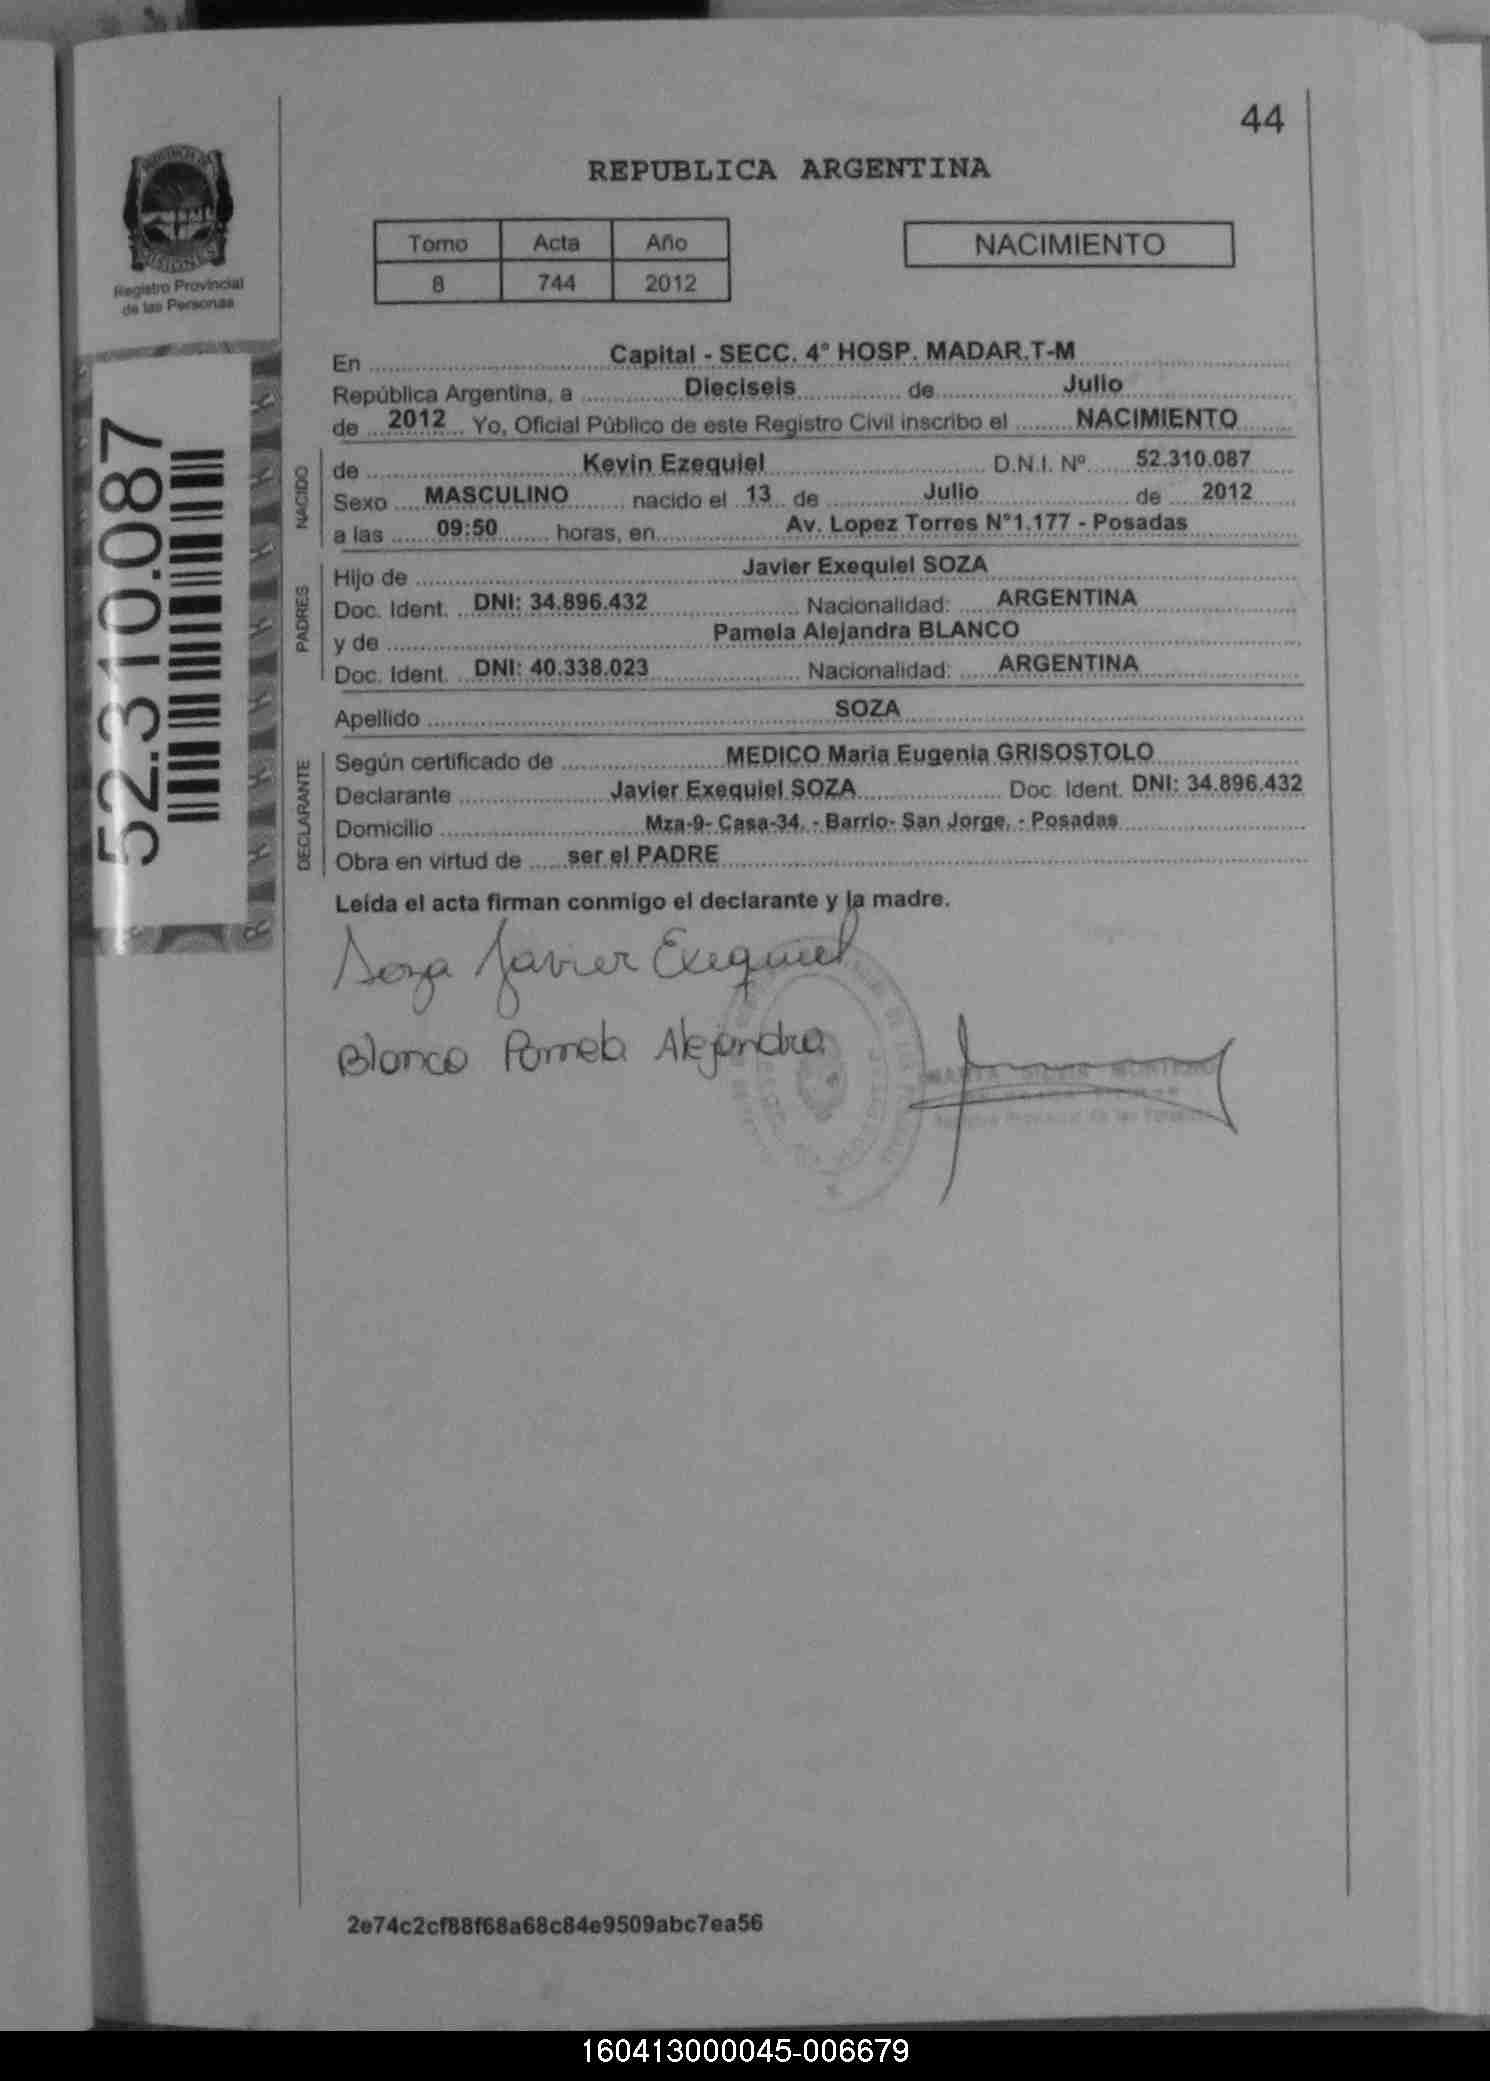 44
PROVINCIA DE
MISIONES
Registro Provincial
de las Personas
REPUBLICA ARGENTINA
Tomo Acta Año
8 744 2012
NACIMIENTO
52.310.087
En Capital - SECC. 4° HOSP. MADAR.T-M
República Argentina, a Dieciseis de Julio
de 2012 Yo, Oficial Público de este Registro Civil inscribo el NACIMIENTO
NACIDO
de Kevin Ezequiel D.N.I. Nº 52.310.087
Sexo MASCULINO nacido el 13 de Julio de 2012
a las 09:50 horas, en Av. Lopez Torres N°1.177 - Posadas
PADRES
Hijo de Javier Exequiel SOZA
Doc. Ident. DNI: 34.896.432 Nacionalidad: ARGENTINA
y de Pamela Alejandra BLANCO
Doc. Ident. DNI: 40.338.023 Nacionalidad: ARGENTINA
Apellido SOZA
DECLARANTE
Según certificado de MEDICO Maria Eugenia GRISOSTOLO
Declarante Javier Exequiel SOZA Doc. Ident. DNI: 34.896.432
Domicilio Mza-9- Casa-34. - Barrio- San Jorge. - Posadas
Obra en virtud de ser el PADRE
Leída el acta firman conmigo el declarante y la madre.
Soza Javier Exequiel
Blanco Pamela Alejandra
MONTERO
Registro Provincial de las Personas
2e74c2cf88f68a68c84e9509abc7ea56
160413000045-006679